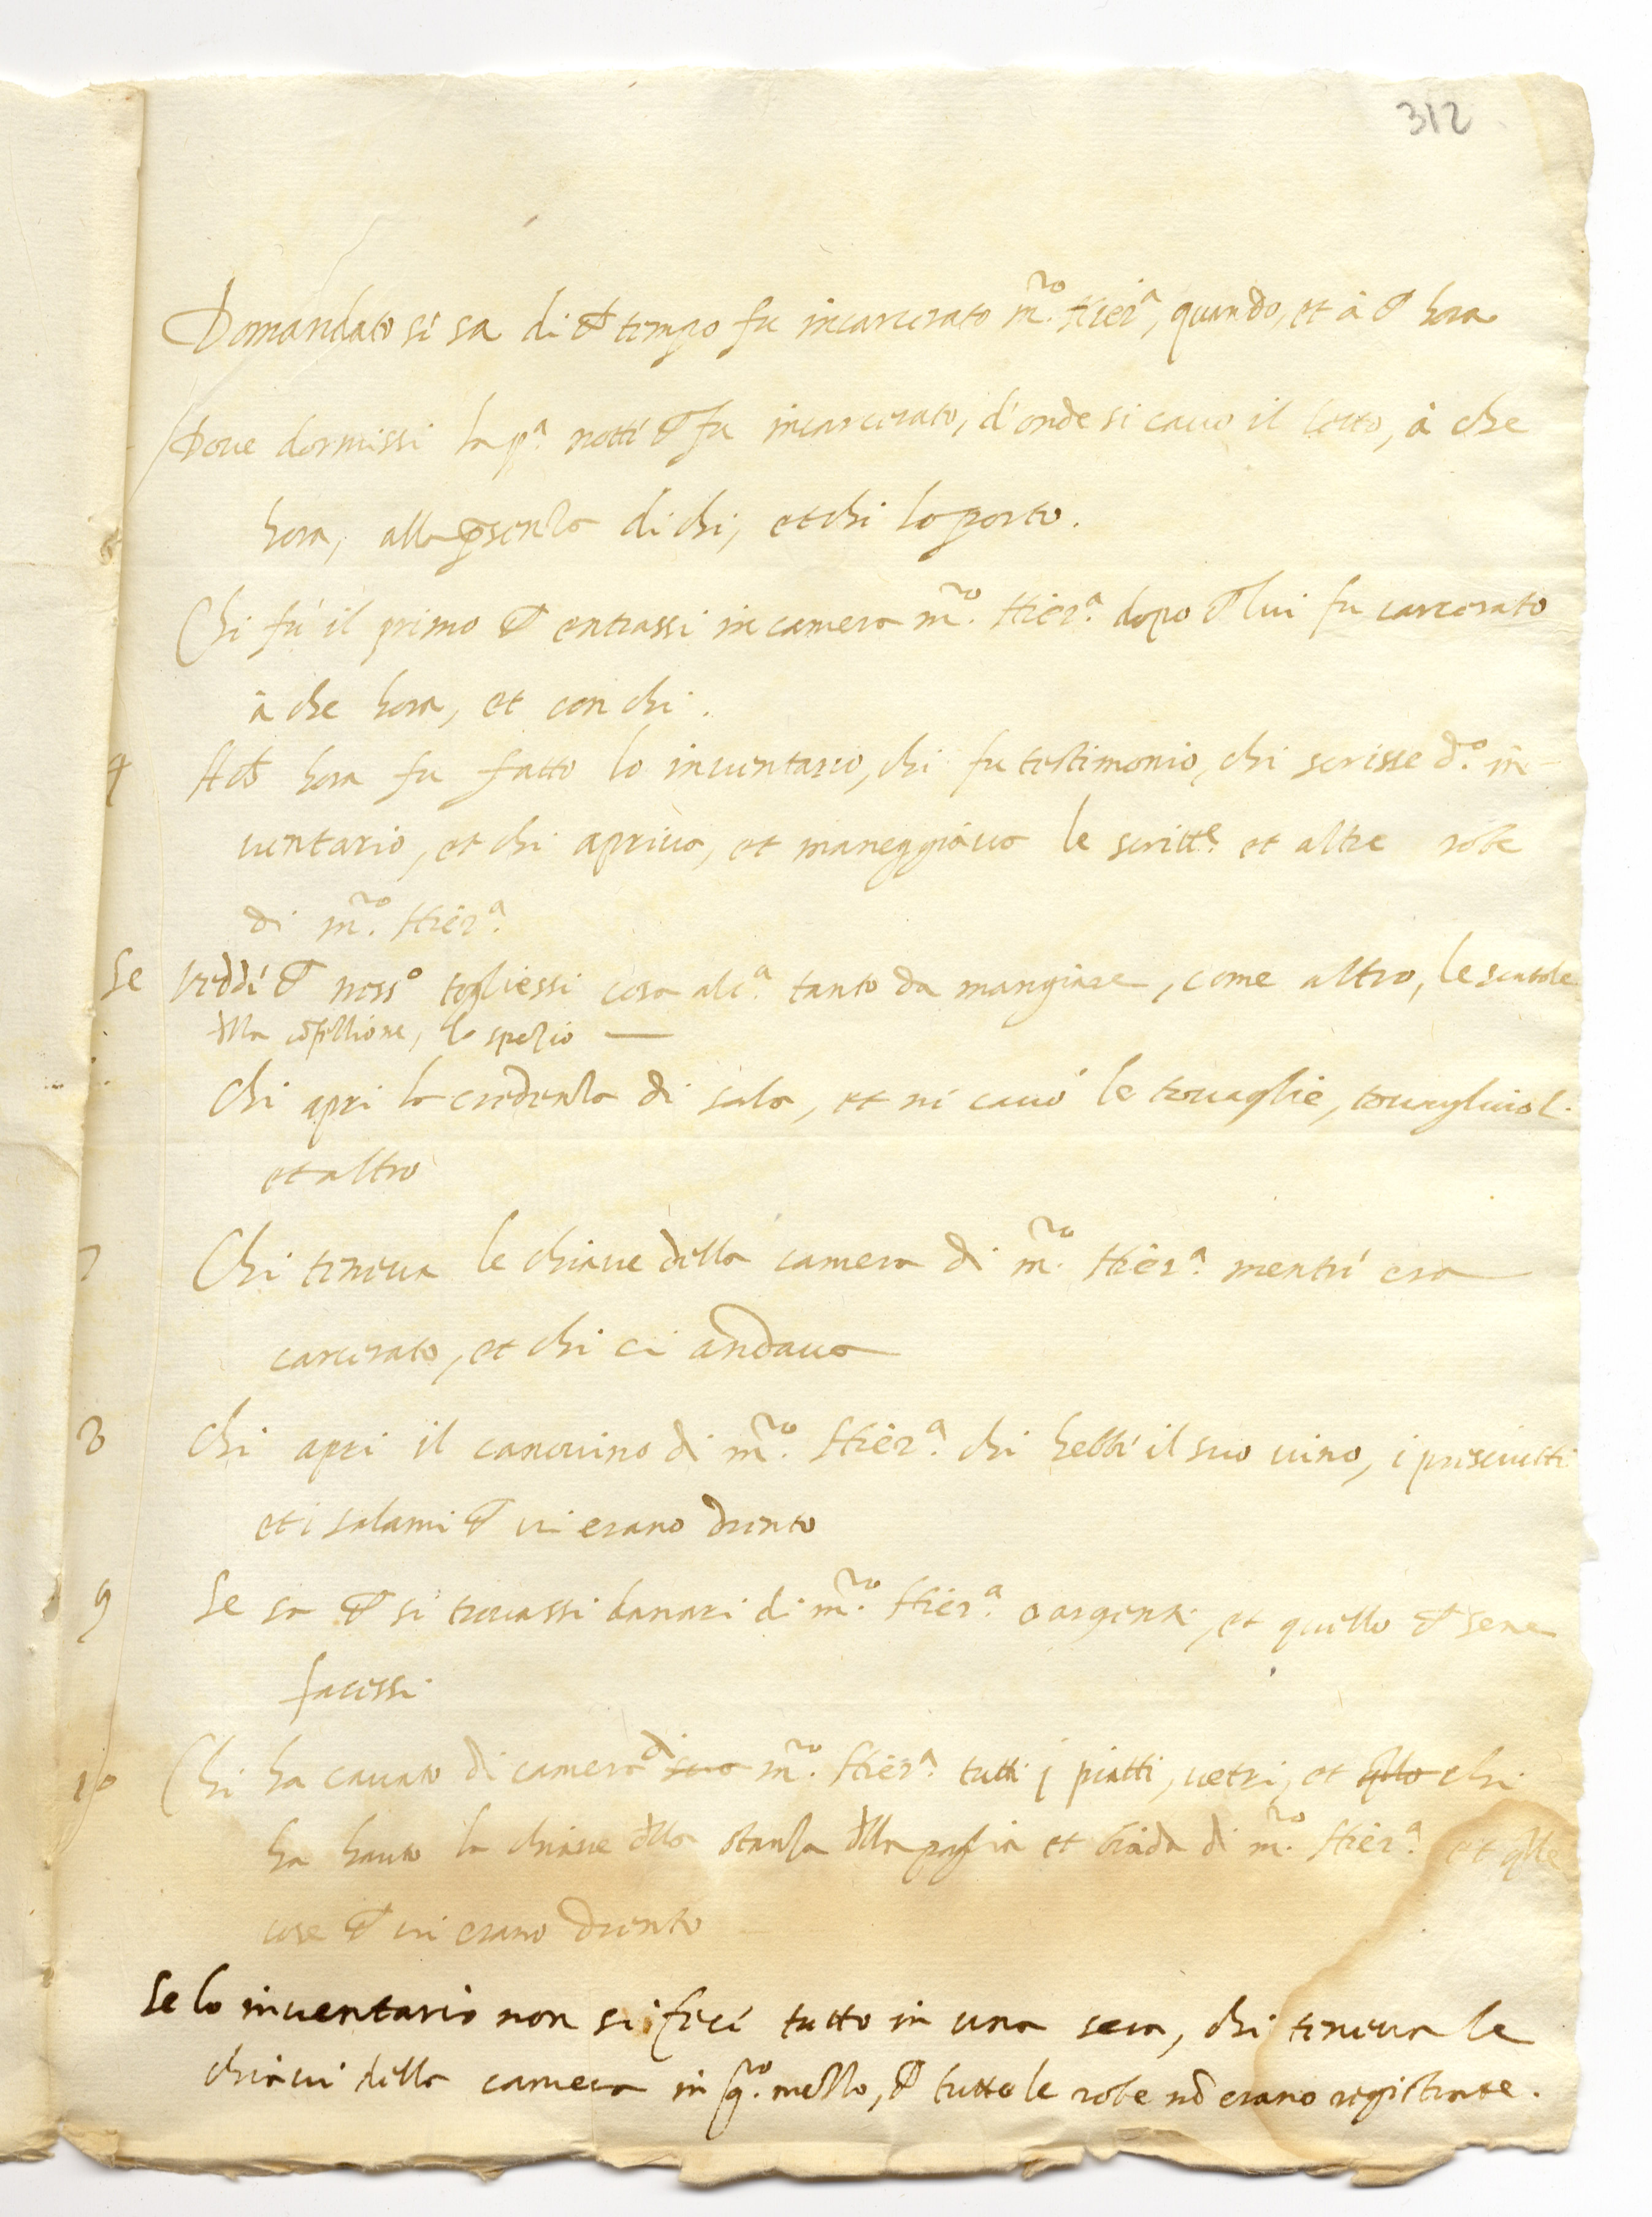 312
Domandato si sa di che tempo fu incarcerato m.ro Hier.a, quando, et à che hora
Dove dormissi la p.a notti che fu incarcerato, d'onde si cavo il letto, à che
hora, alla psenza di chi, et chi lo porto.
Chi fú il primo che entrassi in camera m.ro Hier.a dopo che lui fu carcerato
à che hora, et con chi.
4 A ch hora fu fatto lo inventario, chi fu testimonio, chi scrisse d.o in-
ventario, et chi apriva, et maneggiava le scritt.e et altre robe
di m.ro Hier.a
Se veddi che ness.o togliessi cosa alc.a tanto da mangiare, come altro, le scatole
dlla cofettione, lo spetio —
Chi apri la credenza di sala, et ni cavó le tovaglie, tovagliuol.
et altro
7 Chi teneva le chiave della camera di m.ro Hier.a mentri era
carcerato, et chi ci andava
8 Chi apri il canovino di m.ro Hier.a chi hebbi il suo vino, i prisciutti
et i salami che vi erano drento
9 Se sa che si trovassi danari di m.ro Hier.a o argenti, et quello che se ne
facessi
10 Chi ha cavato di camera di sua m.ro Hier.a tutti i piatti, vetri, et qllo chi
ha hauto la chiave dlla stanza dlla paglia et biada di m.ro Hier.a et qlle
cose che vi erano drento
Se lo inventario non si feci tutto in una sera, chi teneva le
chiavi della camera in q.ro mezzo, che tutte le robe nō erano registrate.